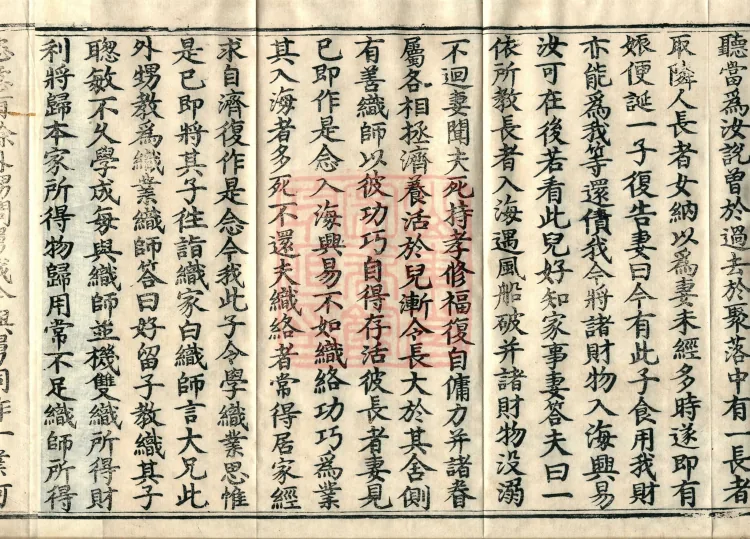 聽當爲汝說曾於過去於聚落中有一長者
取隣人長者女納以爲妻未經多時遂即有
娠便誕一子復告妻曰今有此子食用我財
亦能爲我等還債我今將諸財物入海興易
汝可在後若看此兒好知家事妻答夫曰一
依所教長者入海遇風船破并諸財物没溺
不迴妻聞夫死持孝修福復自傭力并諸眷
屬各相拯濟養活於兒漸令長大於其舍側
有善織師以彼功巧自得存活彼長者妻見
已即作是念入海興易不如織絡功巧爲業
其入海者多死不還夫織絡者常得居家經
求自濟復作是念今我此子令學織業思惟
是已即將其子往詣織家白織師言大兄此
外甥教爲織業織師答曰好留子教織其子
聰敏不久學成每與織師並機雙織所得財
利將歸本家所得物歸用常不足織師所得